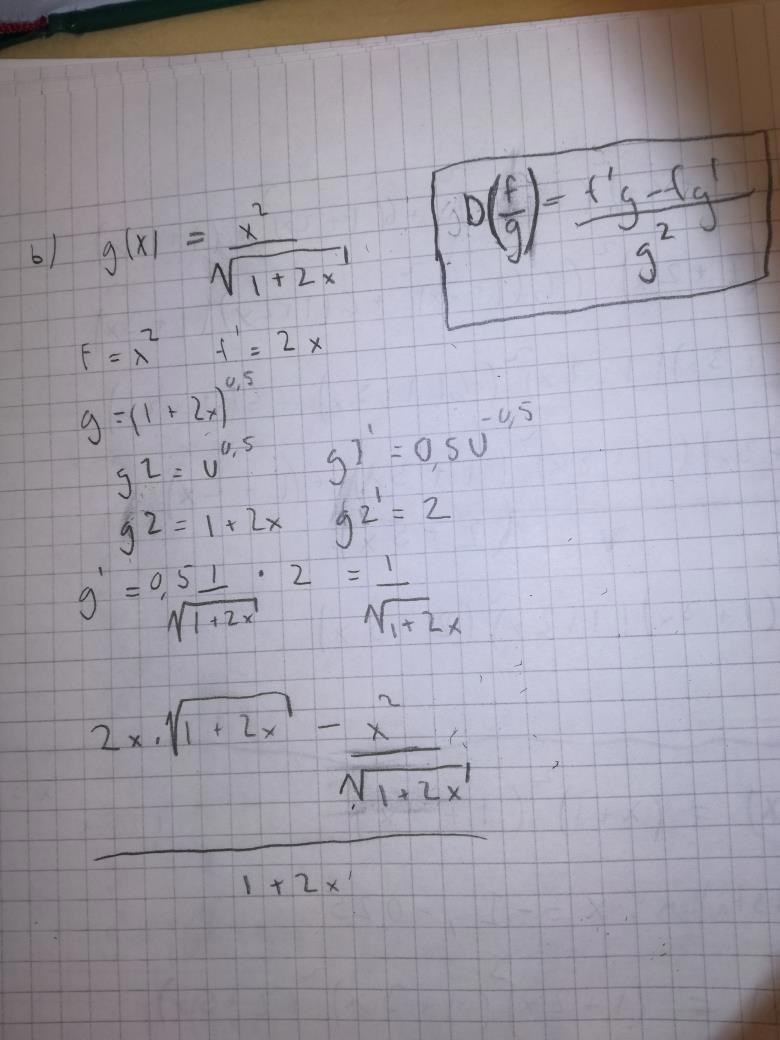 b) g(x) = x² / √(1 + 2x)
D(f/g) = (f'g - fg') / g²
F = x² f' = 2x
g = (1 + 2x)^0,5
g2 = u^0,5 g1' = 0,5u^-0,5
g2 = 1 + 2x g2' = 2
g' = 0,5 1/√(1+2x) · 2 = 1/√(1+2x)
(2x · √(1 + 2x) - x²/√(1+2x)) / (1 + 2x)